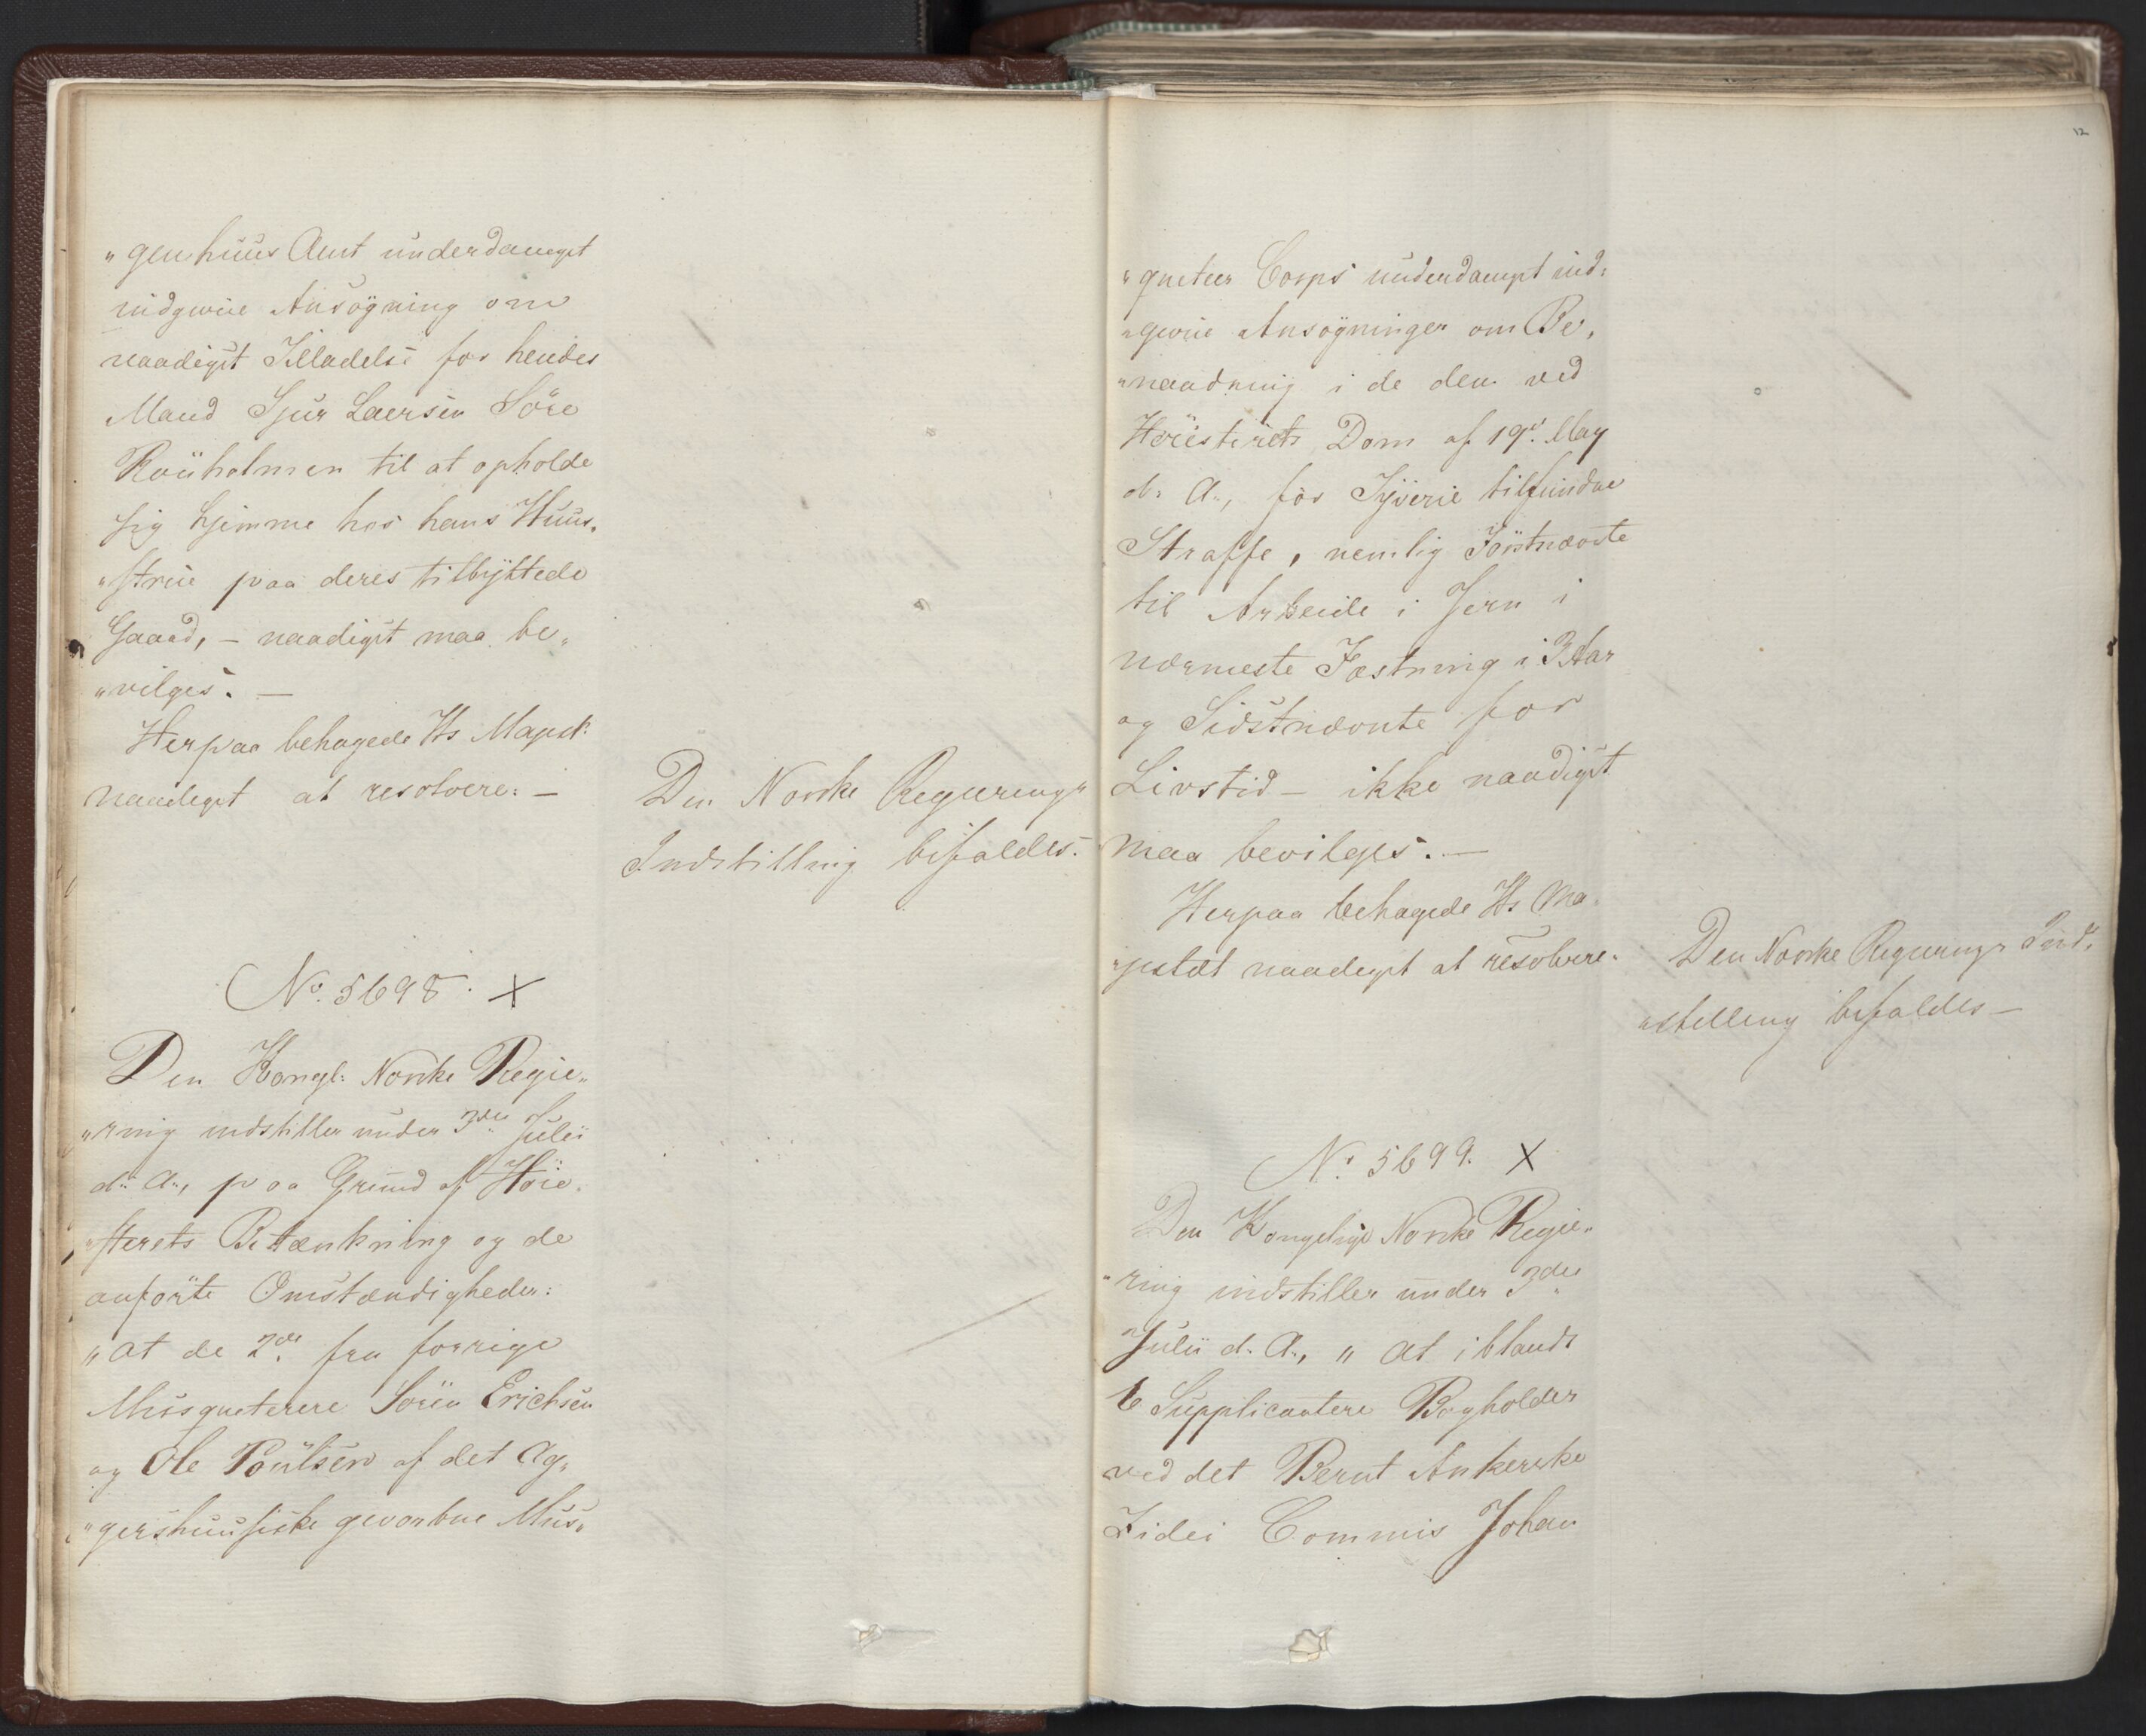 "genhuus Amt underdanigst
indgivne Ansøgning om
naadigst Tilladelse for hendes
Mand Sjur Laersen Søre
Rouholmen til at opholde
sig hjemme hos hans Huus,
"strue paa deres tilbyttede
Gaard, – naadigst maa be„
"vilges. –
Herpaa behagede Hs Majest:
naadigst at resolvere: –
Den Norske Regjerings
Indstilling bifaldes.
No. 5698. X
Den Kongl: Norske Regie„
"ring indstiller under 3die Julii
d: A:, paa Grund af Höie„
"sterets Betænkning og de
anførte Omstændigheder:
"at de 2de fra forrige
Musqueterere Sören Erichsen
og Ole Poulsen af det Ag„
"gershuusiske gevorbne Mus„
12
"queteer Corps underdanigst ind„
"givne Ansøgninger om Be„
"naadning i de dem ved
Höiesterets Dom af 19de May
d: A:, for Tyverie tilfundne
Straffe, nemlig Førstnævnte
til Arbeide i Jern i
nærmeste Fæstning i 3 Aar
og Sidstnævnte for
Livstid – ikke naadigst
maa bevilges. –
Herpaa behagede Hs Ma„
"jestæt naadigst at resolvere:
Den Norske Regjerings Ind„
"stilling bifaldes –
No. 5699. X
Den Kongelige Norske Regie„
"ring indstiller under 3die
Julii d: A:, "at iblandt
6 Supplicantere Bogholder
ved det Bernt Ankerske
Fidei Commis Johan